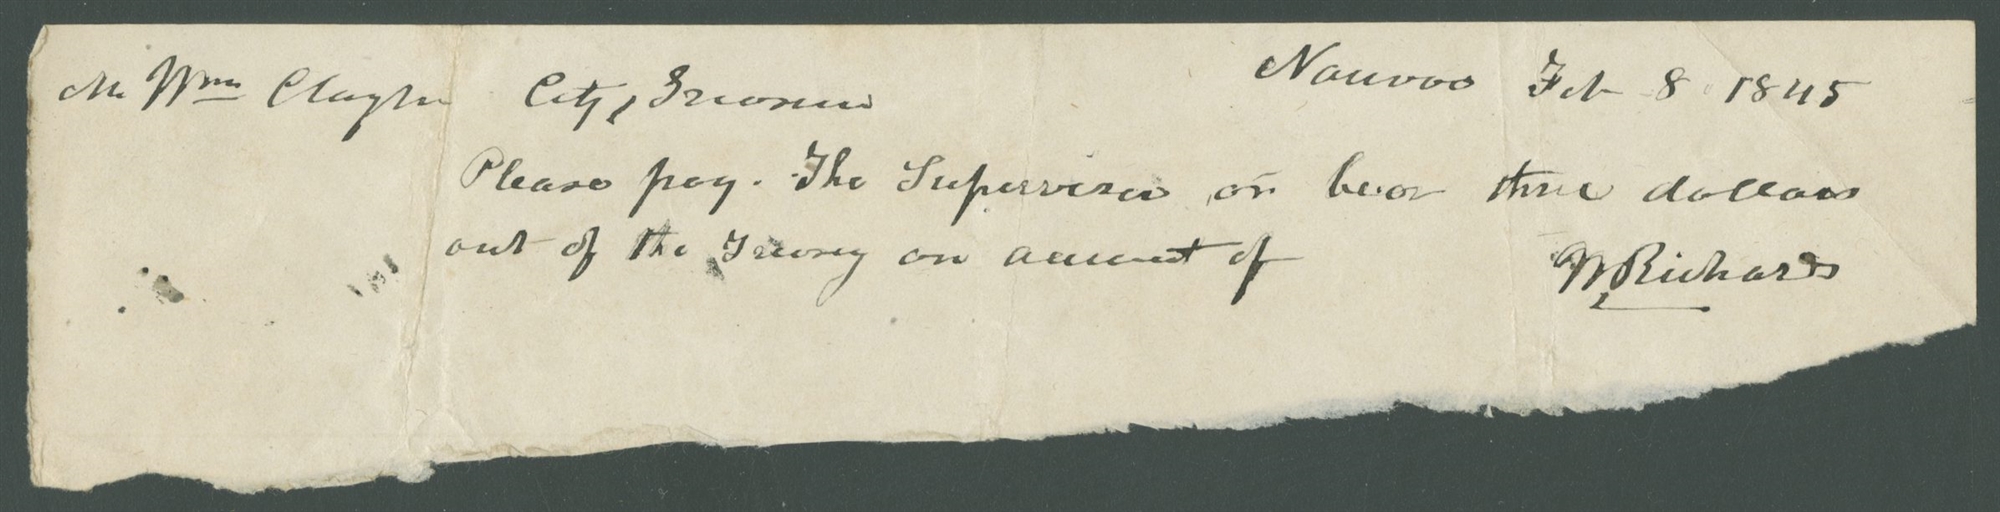 Nauvoo Feb 8 1845
Mr Wm Clayton City, Treasurer
Please pay. The Supervisor or bear three dollars
out of the Treasy on account of
W Richards